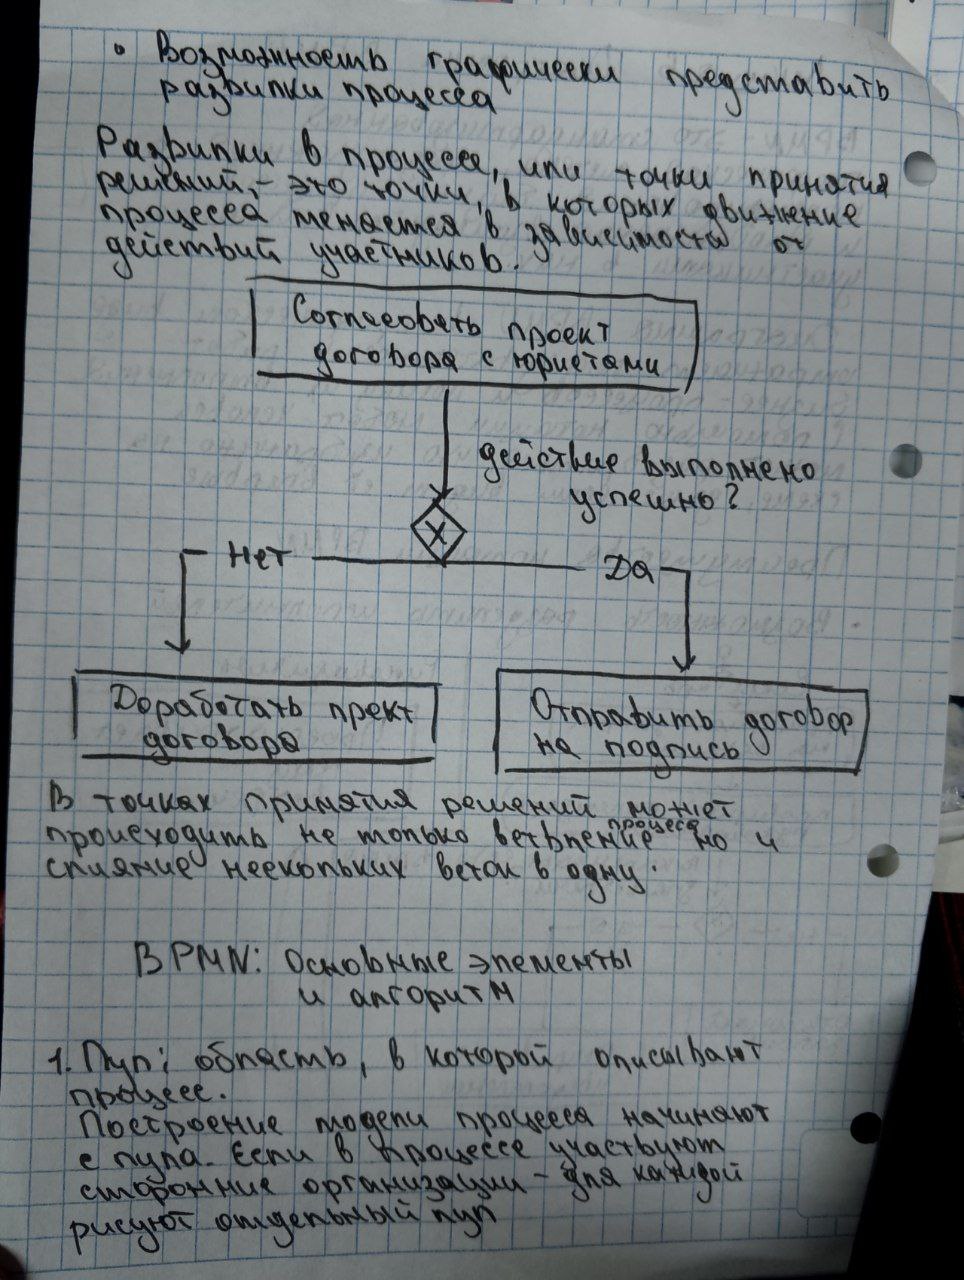 • Возможность графически представить
развилки процесса
Развилки в процессе, или точки принятия
решений, - это точки, в которых движение
процесса меняется в зависимости от
действий участников.
Согласовать проект
договора с юристами
действие выполнено
успешно?
X
Нет
Да
Доработать прект
договора
Отправить договор
на подпись
В точках принятия решений может
происходить не только ветвление процесса но и
слияние нескольких веток в одну.
BPMN: Основные элементы
и алгоритм
1. Пул: область, в которой описывают
процесс.
Построение модели процесса начинают
с пула. Если в процессе участвуют
сторонние организации - для каждой
рисуют отдельный пул